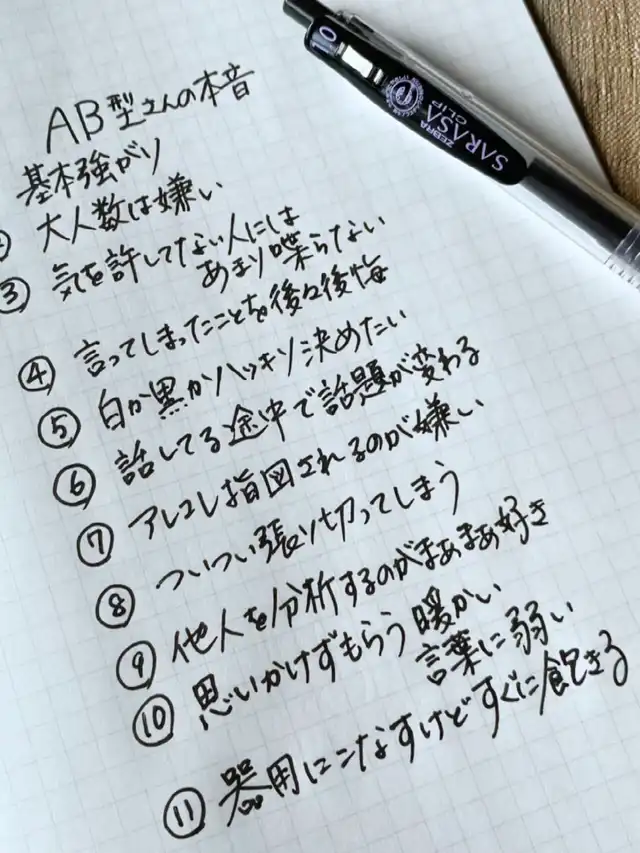 AB型さんの本音
基本強がり
② 大人数は嫌い
③ 気を許してない人には
あまり喋らない
④ 言ってしまったことを後々後悔
⑤ 白か黒かハッキリ決めたい
⑥ 話してる途中で話題が変わる
⑦ アレコレ指図されるのが嫌い
⑧ ついつい張り切ってしまう
⑨ 他人を分析するのがまぁまぁ好き
⑩ 思いがけずもらう暖かい
言葉に弱い
⑪ 器用にこなすけどすぐに飽きる
1.0
ZEBRA
SARASA
CLIP